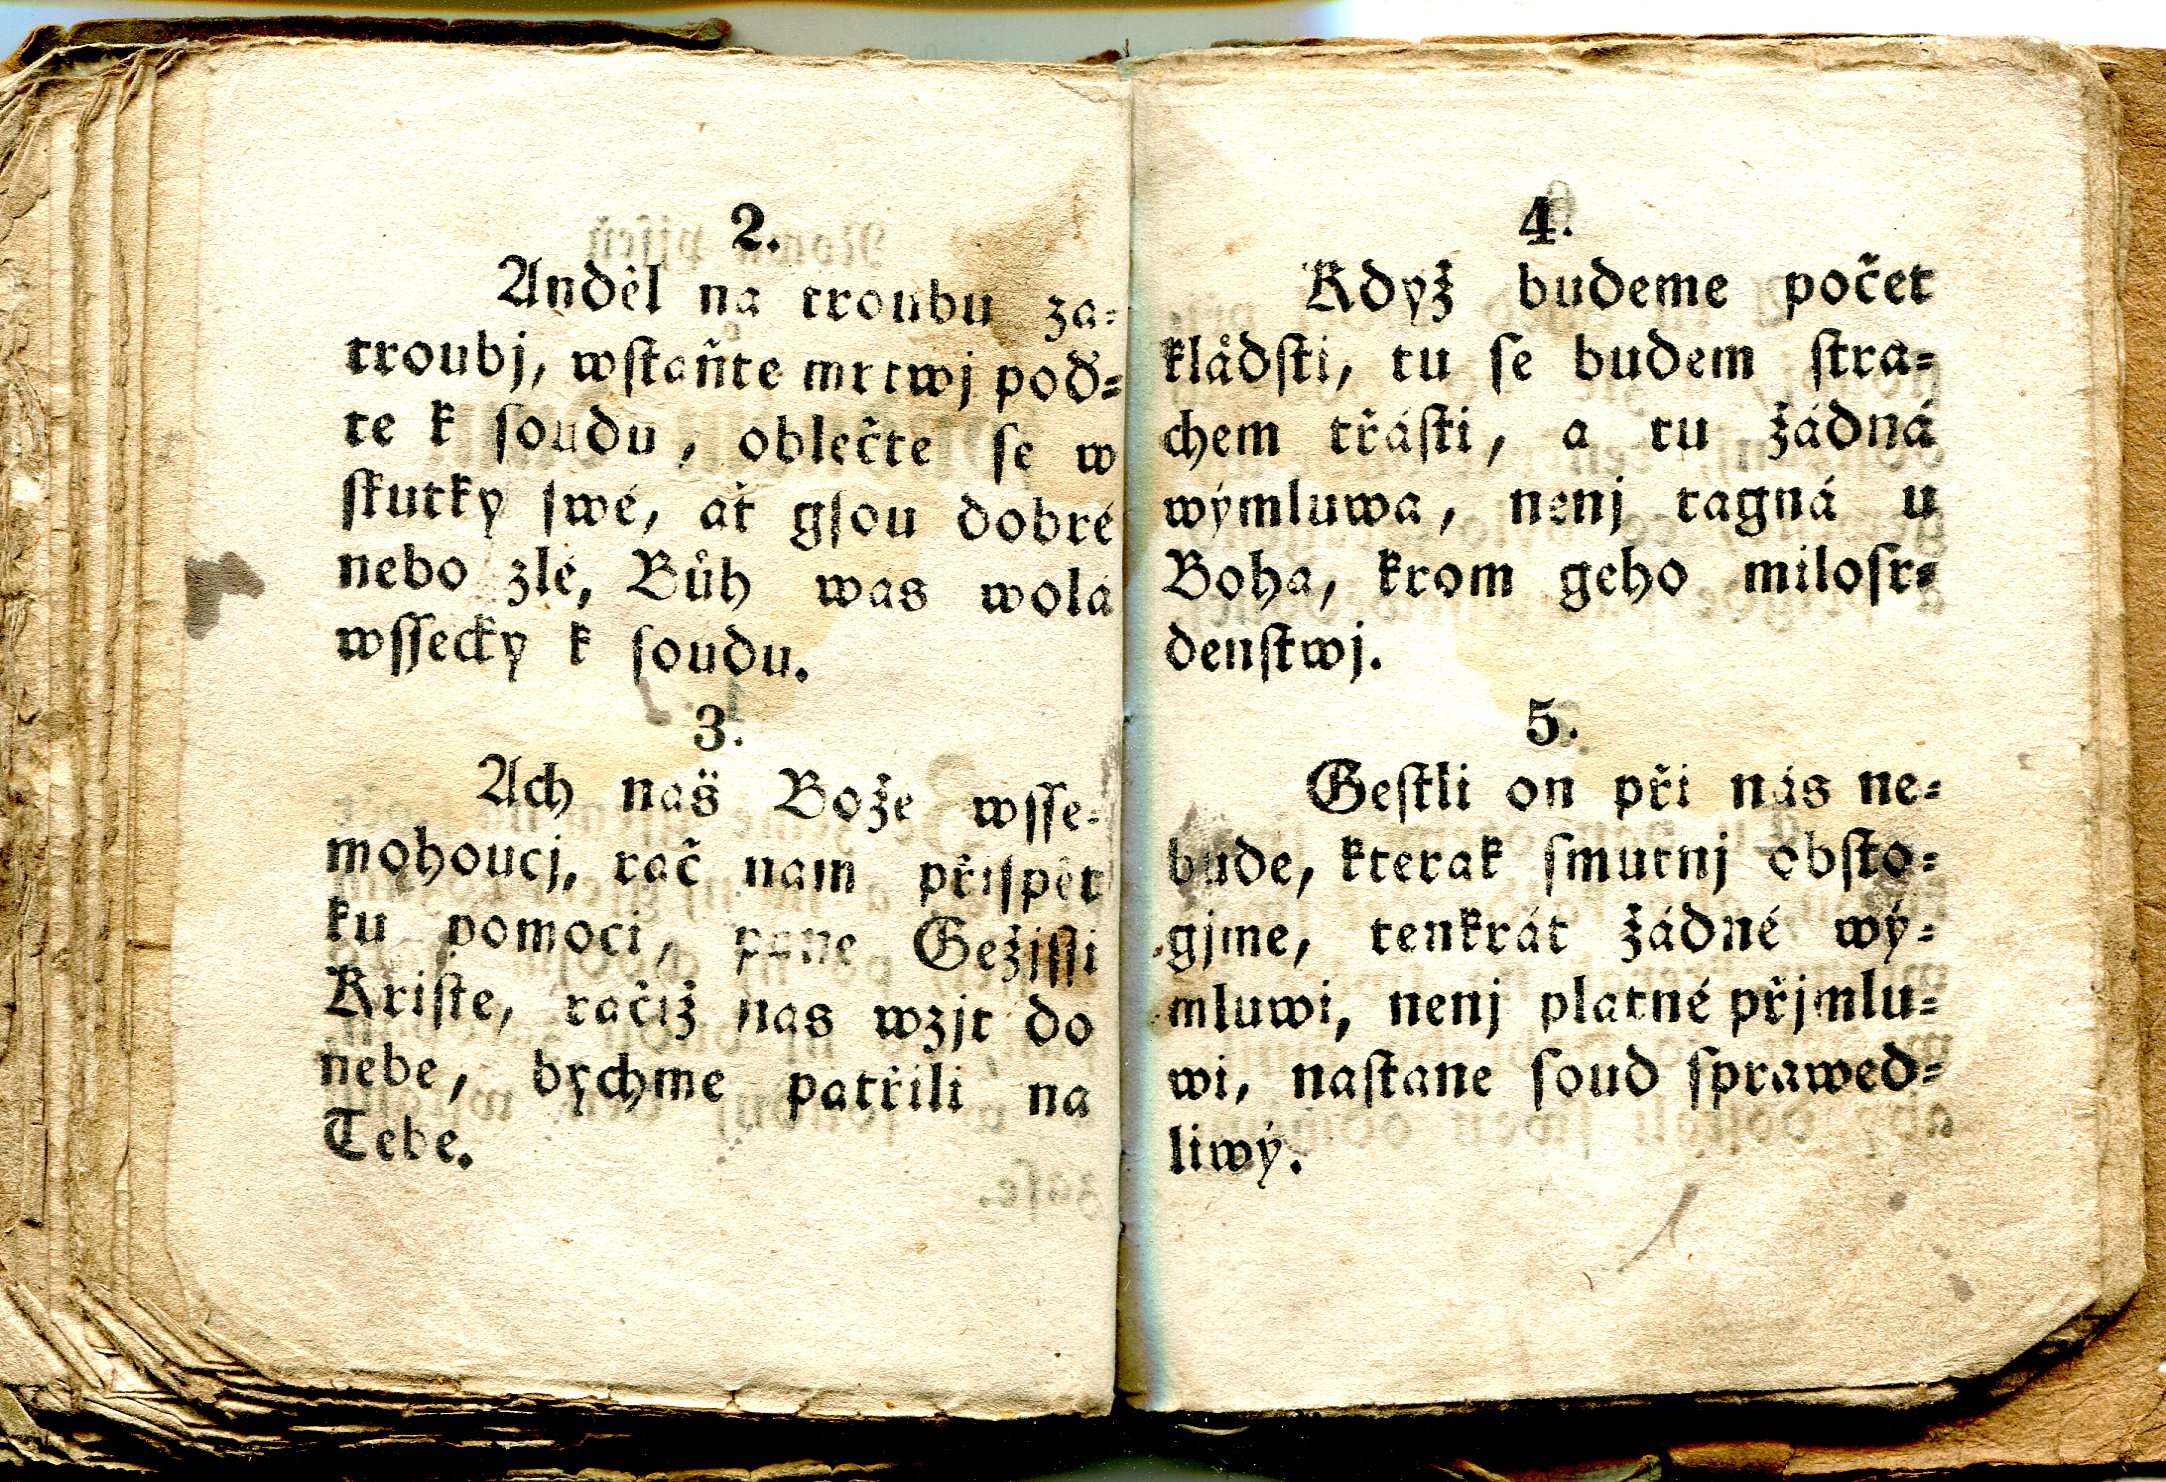 2.
Anděl na troubu za=
troubj, wſtaňte mrtwj poď=
te k ſoudu, oblečte ſe w
ſkutky ſwé, ať gſou dobré
nebo zlé, Bůh was wolá
wſſecky k ſoudu.
3.
Ach naš Bože wſſe=
mohoucj, rač nam přiſpět
ku pomoci, pane Gežjſſi
Kriſte, račiž nas wzjt do
nebe, bychme patřili na
Tebe.
4.
Když budeme počet
kláďſti, tu ſe budem ſtra=
chem třáſti, a tu žádná
wýmluwa, nenj tagná u
Boha, krom geho miloſr=
denſtwj.
5.
Geſtli on při nás ne=
bude, kterak ſmutnj obſto=
gjme, tenkrát žádné wý=
mluwi, nenj platné přjmlu=
wi, naſtane ſoud ſprawed=
liwý.